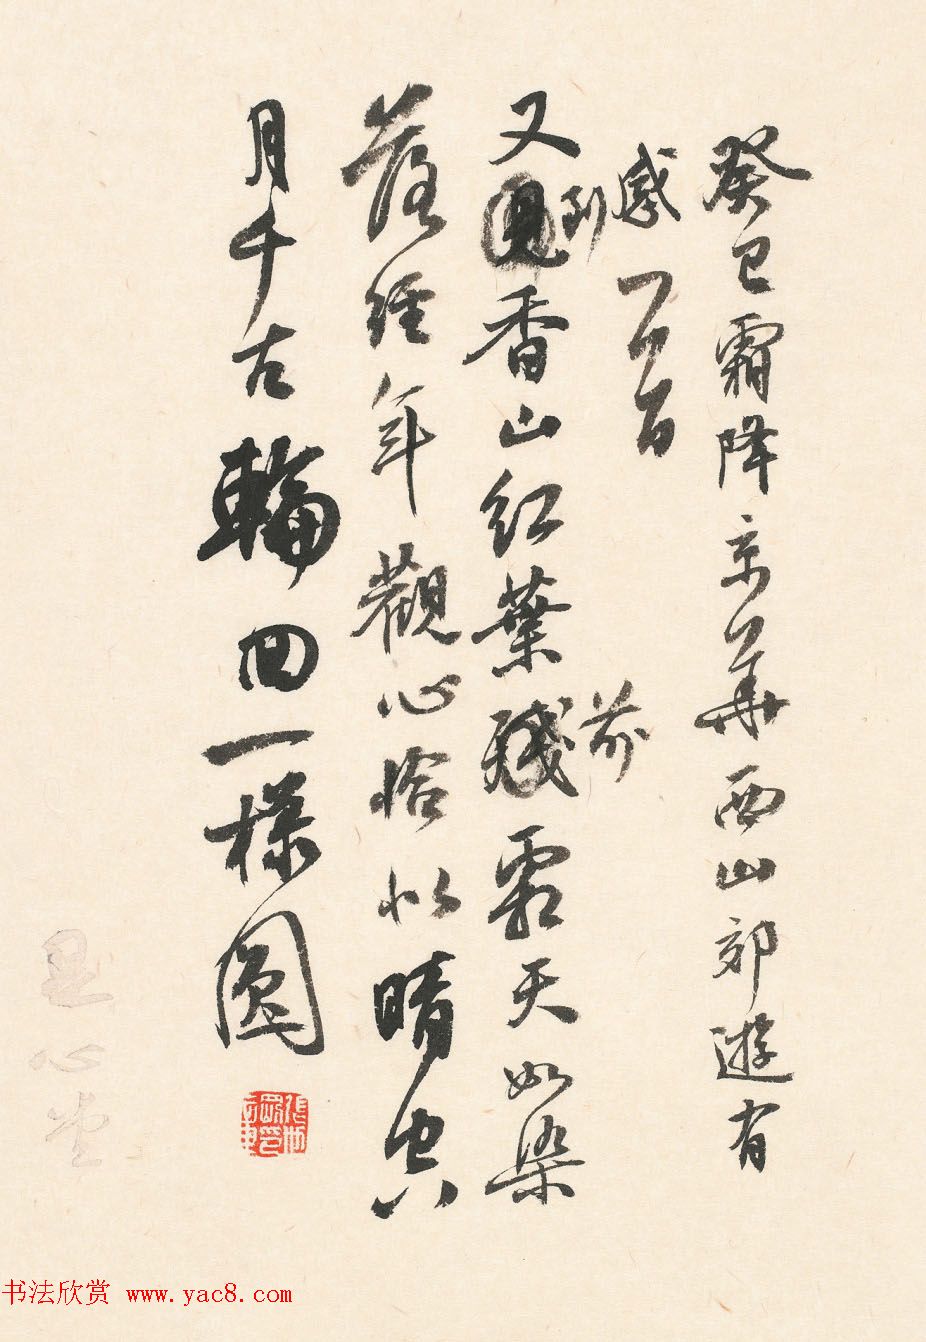 癸巳霜降京華西山郊遊有
感一首
到 前
又見香山紅葉殘霜天如染
落經年觀心恰似晴空
月千古輪回一樣圓
书法欣赏 www.yac8.com